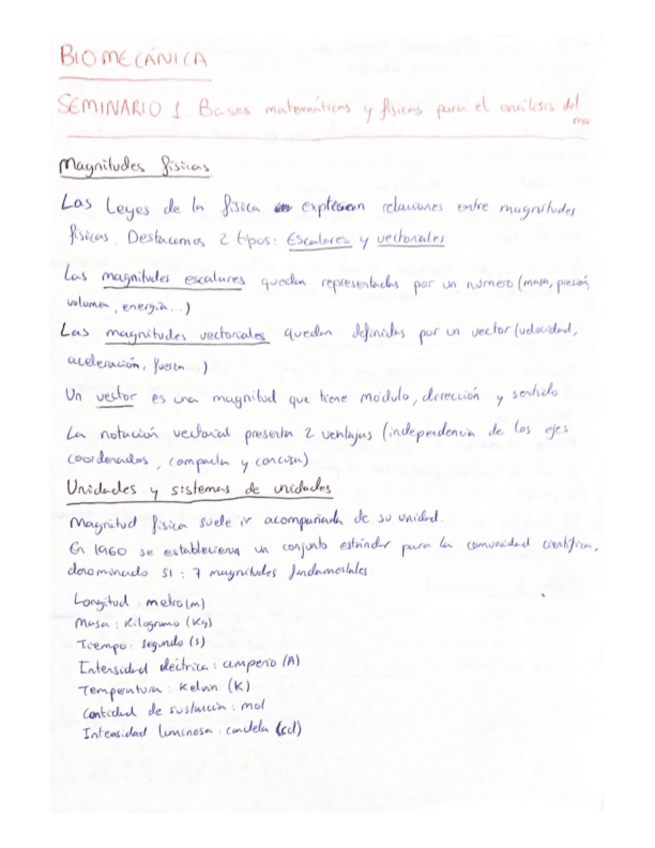 BIOMECÁNICA
SEMINARIO 1. Bases matemáticas y físicas para el análisis del
Magnitudes físicas
Las Leyes de la física expresan relaciones entre magnitudes
físicas. Destacamos 2 tipos: Escalares y vectoriales
Las magnitudes escalares quedan representadas por un número (masa, presión,
volumen, energía...)
Las magnitudes vectoriales quedan definidas por un vector (velocidad,
aceleración, fuerza...)
Un vector es una magnitud que tiene módulo, dirección y sentido
La notación vectorial presenta 2 ventajas (independencia de los ejes
coordenados, compacta y concisa)
Unidades y sistemas de unidades
Magnitud física suele ir acompañada de su unidad.
En 1960 se establecieron un conjunto estándar para la comunidad científica,
denominado SI: 7 magnitudes fundamentales.
Longitud: metro (m)
Masa: Kilogramo (Kg)
Tiempo: segundo (s)
Intensidad eléctrica: amperio (A)
Temperatura: Kelvin (K)
Cantidad de sustancia: mol
Intensidad luminosa: candela (cd)